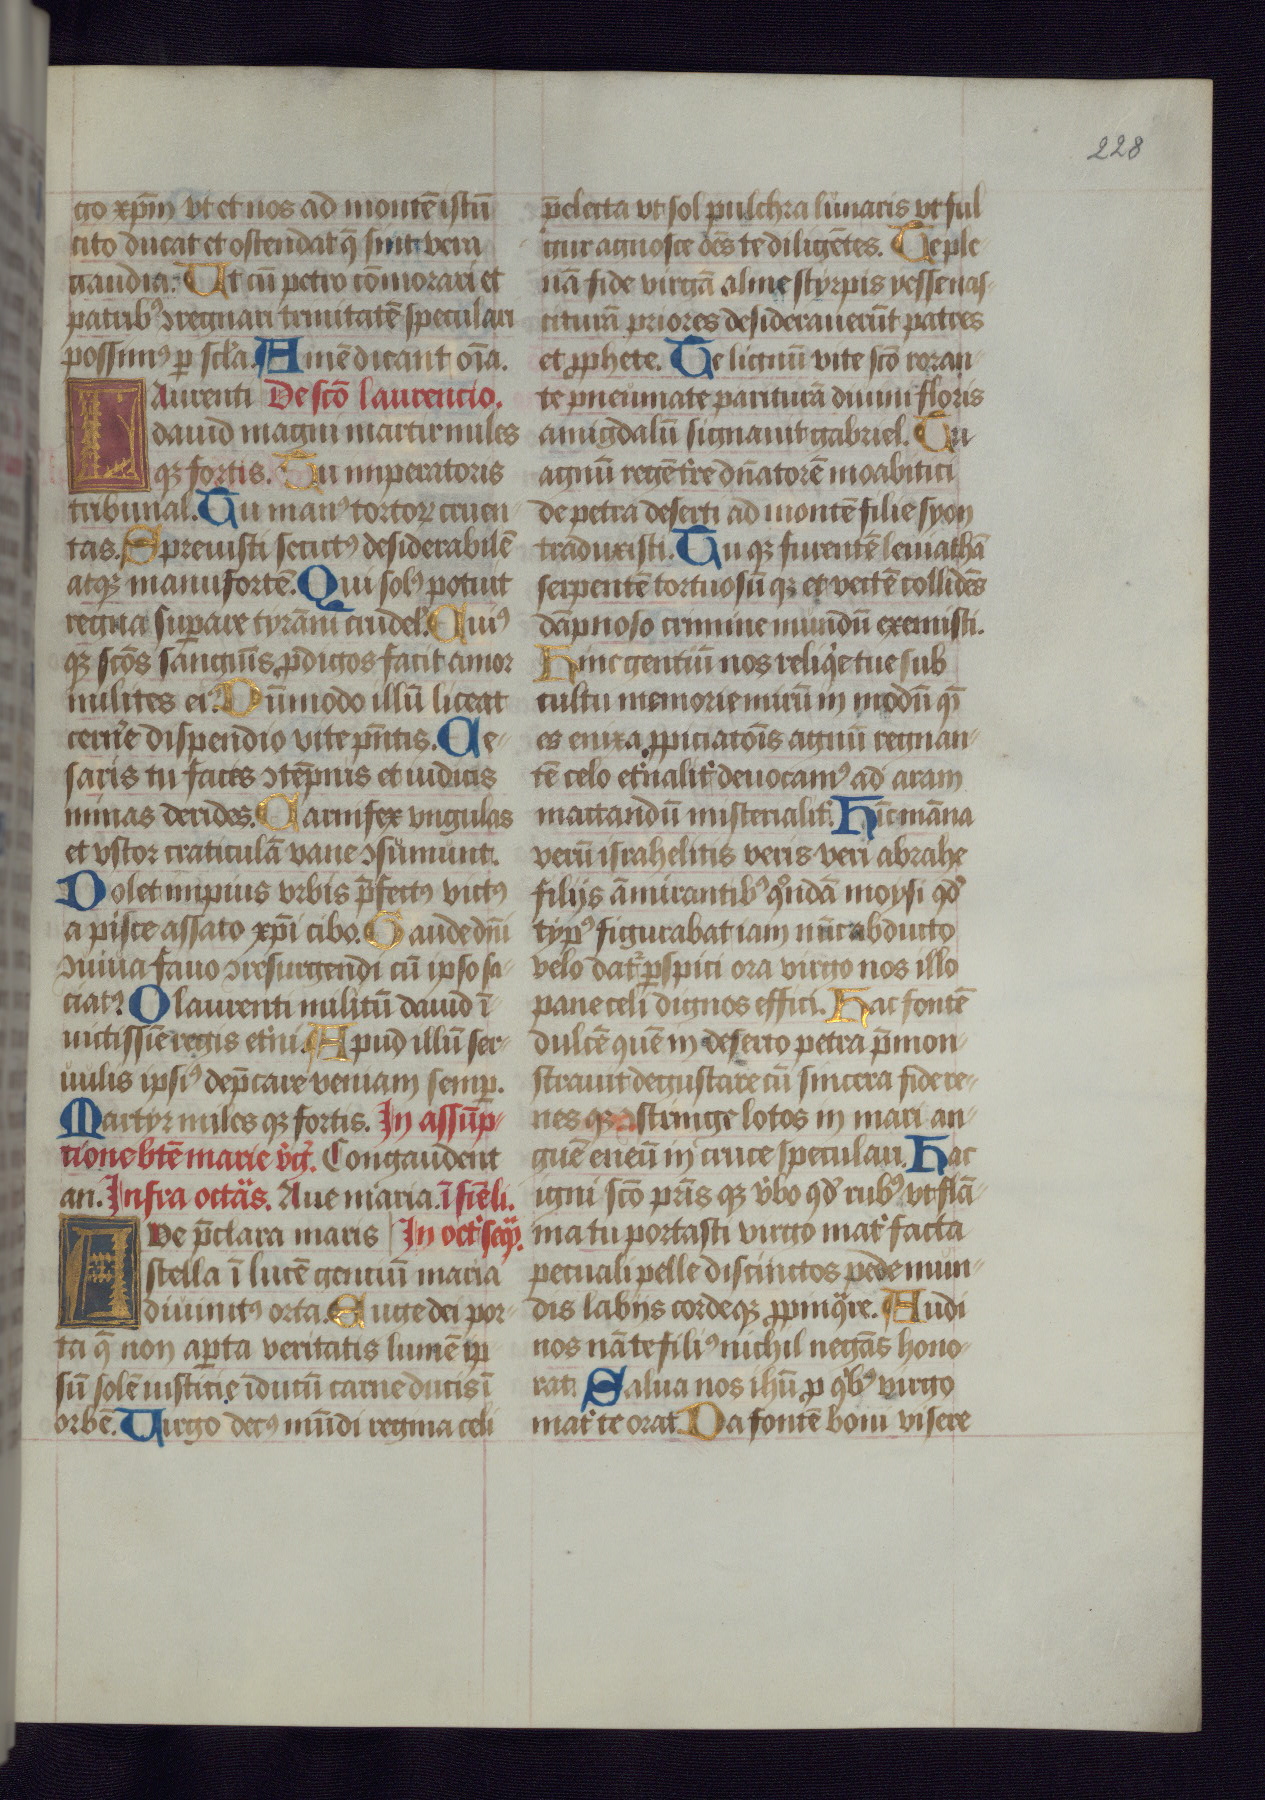 228
go xp̄m vt et nos ad montē istū
cito ducat et ostendat q̄ sint vera
gaudia. Ut cū petro cōmorari et
patribꝰ ↄregnari trinitatē speculari
possimꝰ ꝑ scl̄a. Amē dicant oīa.
Laurenti De scō laurencio.
dauid magni martir miles
qꝫ fortis. Tu imperatoris
tribunal. Tu manꝰ tortoꝝ cruen-
tas. Spreuisti secutꝰ desiderabilē
atqꝫ manu fortē. Qui solꝰ potuit
regna suꝑare tyrāni crudel̄. Cuiꝰ
qꝫ scōs sanguīs ꝓdigos facit amor
milites eiꝰ. Dūmodo illū liceat
cern̄e dispendio vite pn̄tis. Ce-
saris tu fasces ↄtēpnis et iudicis
minas derides. Carnifex vngulas
et vstor craticulā vane ↄsūmunt.
Dolet impius vrbis p̄fectꝰ victꝰ
a pisce assato xp̄i cibo. Gaude dn̄i
ↄuiua fauo ↄresurgendi cū ipso sa-
ciatꝰ. O laurenti militū dauid ī
uictissīe regis etn̄i. Apud illū ser-
uulis ipsiꝰ dep̄care veniam semꝑ.
Martyr miles qꝫ fortis. In assūp-
tione btē marie v̄ḡ. Congaudent
an. Infra octās. Aue maria. ī fīe li.
AVe p̄clara maris In oct̄ seq̄.
stella ī lucē gentiū maria
diuinitꝰ orta. Euge dei por-
ta q̄ non aꝑta veritatis lumē ip̄
sū solē iusticie īdutū carne ducis ī
orbē. Uirgo decꝰ mūdi regina celi
p̄electa vt sol pulchra lunaris vt ful
gur agnosce oēs te diligētes. Te ple-
nā fide virgā alme styrpis yesse nas-
cituraꝫ priores desiderauerūt patres
et ꝓphete. Te lignū vite scō roran-
te pneumate parituraꝫ diuini floris
amigdalū signauit gabriel. Tu
agnū regē tr̄e dn̄atorē moabitici
de petra deserti ad montē filie syon
traduxisti. Tu qꝫ furentē leuiathā
serpentē tortuosū qꝫ et vectē collidēs
dāpnoso crimine mūndū exemisti.
Hinc gentiū nos reliq̄e tue sub
cultu memorie mirū in modū q̄
es enixa ꝓpiciatōīs agnū regnan-
tē celo et̄nalit̄ deuocamꝰ ad aram
mactandū misterialit̄. Hīc māna
verū israhelitis veris veri abrahe
filijs āmirantibꝰ qͦndā moysi qd̄
typꝰ figurabat iam nūc abducto
velo dat̄ ꝑspici ora virgo nos illo
pane celi dignos effici. Hac fontē
dulcē quē in deserto petra p̄mon-
strauit degustare cū sincera fide re-
nes qꝫ astringe lotos in mari an-
guē eneū in cruce speculari. Hac
igni scō pr̄is qꝫ v̄bo qd̄ rubꝰ vt flā-
ma tu portasti virgo mat̄ facta
pecuali pelle discinctos pede mun-
dis labijs cordeqꝫ ꝓpinq̄re. Audi
nos nā te filiꝰ nichil negās hono-
rat. Salua nos ihū ꝓ qͥbꝰ virgo
mat̄ te orat. Da fontē boni visere